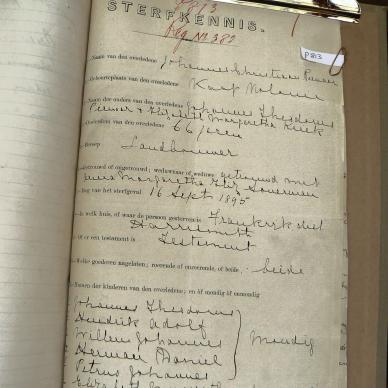 8813
STERFKENNIS.
Reg No 382
P 813
Naam van den overledene Johannes
Geboorteplaats van den overledene Kaap Kolonie
Namen der ouders van den overledene Johannes Theodorus
Margaretha
Ouderdom van den overledene 66 Jaren
Beroep Landbouwer
Getrouwd of ongetrouwd; weduwnaar of weduwe getrouwd met
Margaretha
Dag van het sterfgeval 16 Sept 1895
In welk huis, of waar de persoon gestorven is Frankrijk dist
Harrismith
Of er een testament is Testament
Welke goederen nagelaten; roerende of onroerende, of beide, beide
Namen der kinderen van den overledene; en òf mondig òf onmondig
Johannes Theodorus
Hendrik Adolf
Willem Johannes
Mondig
Herman Daniel
Petrus Johannes